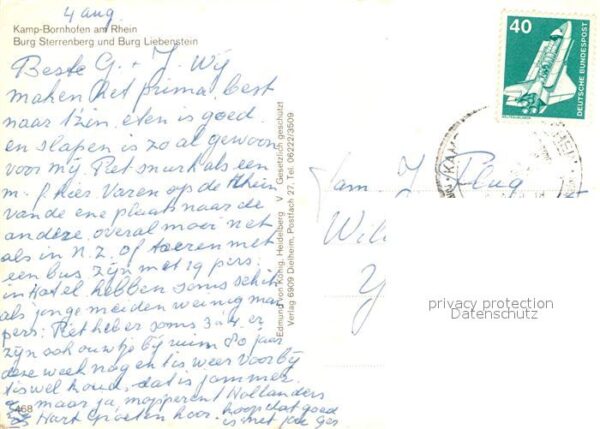 4 aug
Kamp-Bornhofen am Rhein
Burg Sterrenberg und Burg Liebenstein
Beste G. + J. Wij
maken het prima, best
naar 't zien, eten is goed
en slapen is zo al gewoon
voor mij. Piet snurkt als een
m.f. hier. Varen op de Rhein
van de ene plaats naar de
andere, overal mooi net
als in N.Z. of toeren met
een bus zijn met 19 pers.
in Hotel hebben soms schik
als jonge meiden weinig man
pers: Piet heb er soms 3 a 4. er
zijn ook ouwtje bij ruim 80 jaar
deze week nog en 't is weer voorbij
't is wel koud, dat is jammer.
maar ja mopperent Hollanders
Hart. Groeten hoor. hoop dat goed
is met
468
Edmund von König, Heidelberg V. Gesetzlich geschützt
Verlag 6909 Dielheim, Postfach 27, Tel. 06222/3509
40
DEUTSCHE BUNDESPOST
KAM
Fam. J. Plug
Wil
privacy protection
Datenschutz